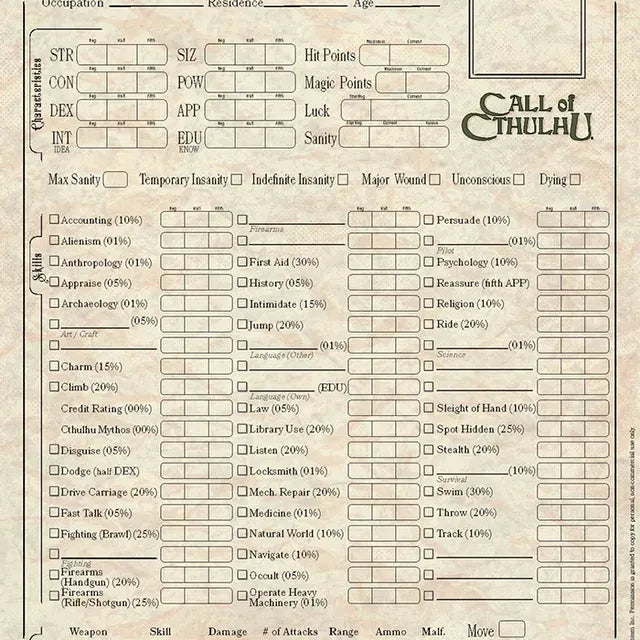 Occupation Residence Age
Characteristics
Reg Half Fifth Reg Half Fifth Maximum Current
STR SIZ Hit Points
Maximum Current
CON POW Magic Points
Starting Current
DEX APP Luck
Starting Current Insane
INT EDU Sanity
IDEA KNOW
CALL of CTHULHU
Max Sanity Temporary Insanity Indefinite Insanity Major Wound Unconscious Dying
Skills
Reg Half Fifth Reg Half Fifth Reg Half Fifth
Accounting (10%) Persuade (10%)
Firearms
Alienism (01%) (01%)
Pilot
Anthropology (01%) First Aid (30%) Psychology (10%)
Appraise (05%) History (05%) Reassure (fifth APP)
Archaeology (01%) Intimidate (15%) Religion (10%)
(05%) Jump (20%) Ride (20%)
Art / Craft
(01%) (01%)
Language (Other) Science
Charm (15%)
Climb (20%) (EDU)
Language (Own)
Credit Rating (00%) Law (05%) Sleight of Hand (10%)
Cthulhu Mythos (00%) Library Use (20%) Spot Hidden (25%)
Disguise (05%) Listen (20%) Stealth (20%)
Dodge (half DEX) Locksmith (01%) (10%)
Survival
Drive Carriage (20%) Mech. Repair (20%) Swim (30%)
Fast Talk (05%) Medicine (01%) Throw (20%)
Fighting (Brawl) (25%) Natural World (10%) Track (10%)
Navigate (10%)
Fighting
Firearms (Handgun) (20%) Occult (05%)
Firearms (Rifle/Shotgun) (25%) Operate Heavy Machinery (01%)
Weapon Skill Damage # of Attacks Range Ammo Malf. Move
Inc. Permission is granted to copy for personal, non-commercial use only.